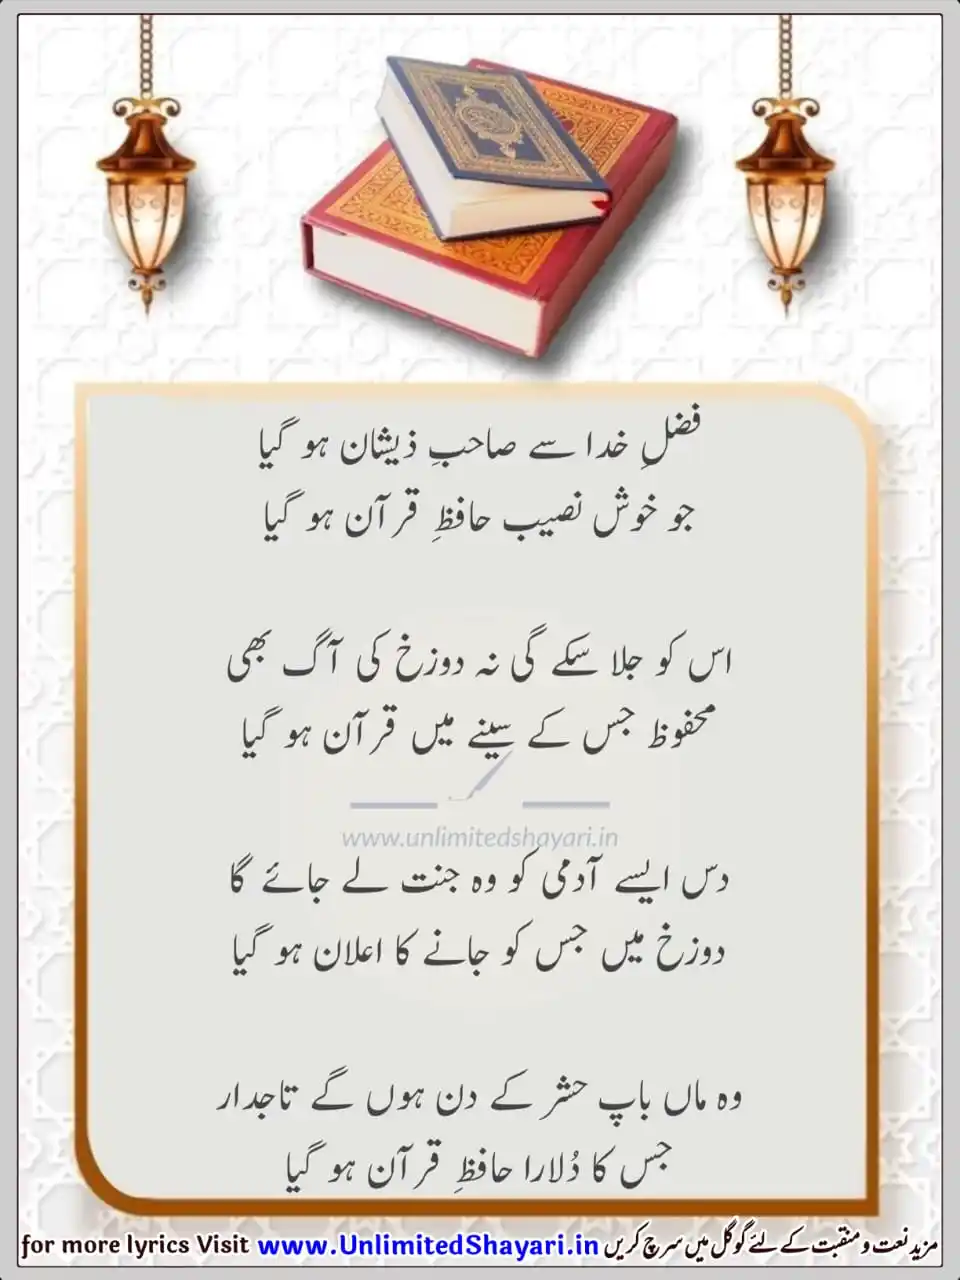 فضلِ خدا سے صاحبِ ذیشان ہو گیا
جو خوش نصیب حافظِ قرآن ہو گیا
اس کو جلا سکے گی نہ دوزخ کی آگ بھی
محفوظ جس کے سینے میں قرآن ہو گیا
www.unlimitedshayari.in
دس ایسے آدمی کو وہ جنت لے جائے گا
دوزخ میں جس کو جانے کا اعلان ہو گیا
وہ ماں باپ حشر کے دن ہوں گے تاجدار
جس کا دُلارا حافظِ قرآن ہو گیا
for more lyrics Visit www.UnlimitedShayari.in مزید نعت و منقبت کے لئے گوگل میں سرچ کریں